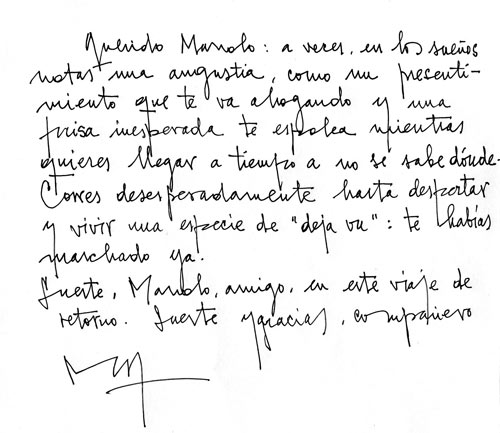 Querido Manolo: a veces, en los sueños
notas una angustia, como un presenti-
miento que te va ahogando y una
prisa inesperada te espolea mientras
quieres llegar a tiempo a no se sabe dónde.
Corres desesperadamente hasta despertar
y vivir una especie de "deja vu": te habías
marchado ya.
Suerte, Manolo, amigo, en este viaje de
retorno. Suerte y gracias, compañero